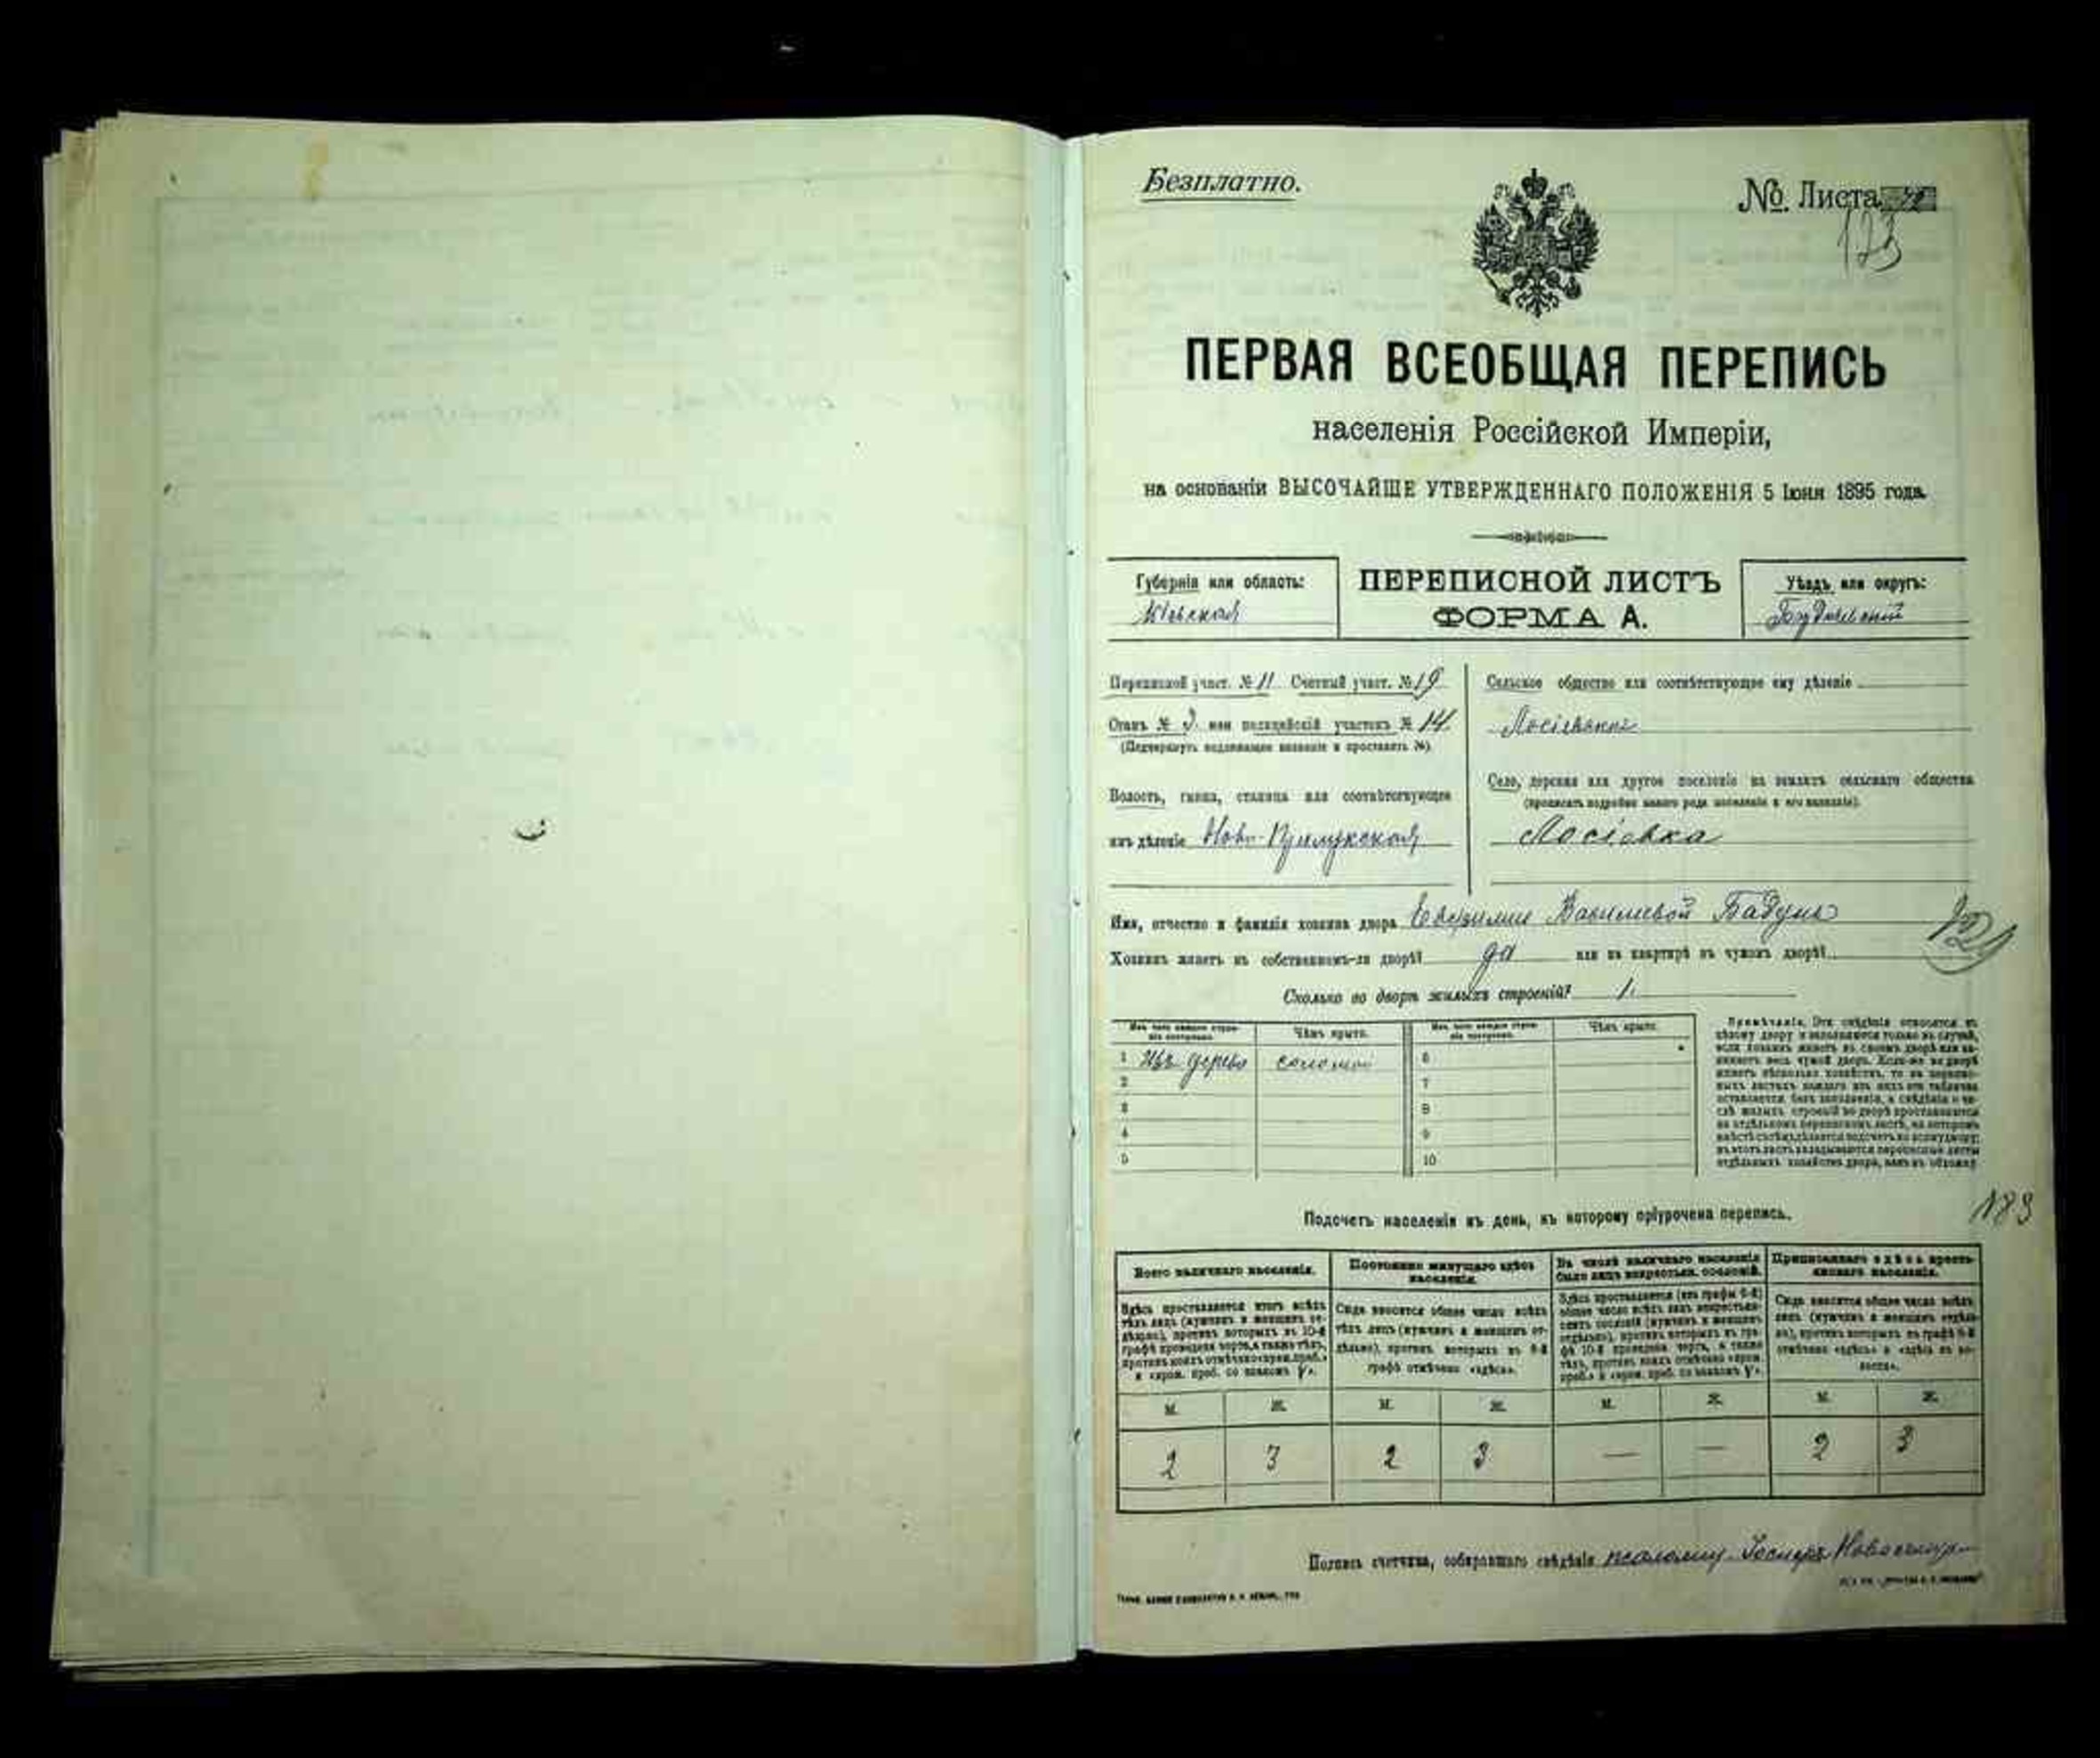 Безплатно.
№ Листа
123
ПЕРВАЯ ВСЕОБЩАЯ ПЕРЕПИСЬ
населенія Россійской Имперіи,
на основаніи ВЫСОЧАЙШЕ УТВЕРЖДЕННАГО ПОЛОЖЕНІЯ 5 Іюня 1895 года.
Губернія или область:
Кіевская
ПЕРЕПИСНОЙ ЛИСТЪ
ФОРМА А.
Уѣздъ или округъ:
Бердичевскій
Переписной участ. № 11 Счетный участ. № 19
Станъ № 2 или полицейскій участокъ № 14
(Подчеркнуть надлежащее названіе и проставить №)
Волость, гмина, станица или соотвѣтствующее
имъ дѣленіе Ново-Прилукская
Сельское общество или соотвѣтствующее ему дѣленіе
Лосіевское
Село, деревня или другое поселеніе на земляхъ сельскаго общества
(прописать подробно какого рода поселеніе и его названіе).
Лосіевка
Имя, отчество и фамилія хозяина двора Василіевой Бадунъ
Хозяинъ живетъ въ собственномъ-ли дворѣ? да или на квартирѣ въ чужомъ дворѣ?
Сколько во дворѣ жилыхъ строеній? 1.
Изъ чего каждое строеніе построено. Чѣмъ крыто. Изъ чего каждое строеніе построено. Чѣмъ крыто.
1 Изъ дерева соломой 6
2 7
3 8
4 9
5 10
Примѣчаніе. Эти свѣдѣнія относятся къ
цѣлому двору и заполняются только въ случаѣ,
если хозяинъ живетъ въ своемъ дворѣ или занимаетъ
весь чужой дворъ. Если-же во дворѣ
имѣетъ нѣсколько хозяйствъ, то въ переписныхъ
листахъ каждаго изъ нихъ эта табличка
оставляется безъ заполненія, а свѣдѣнія о числѣ
жилыхъ строеній во дворѣ проставляются
на отдѣльномъ переписномъ листѣ, на которомъ
отдѣльныхъ хозяйствъ двора, какъ въ обложку
183
Подсчетъ населенія въ день, къ которому пріурочена перепись.
Всего наличнаго населенія. Постоянно живущаго здѣсь населенія. Въ числѣ наличнаго населенія было лицъ некрестьян. сословій. Приписаннаго здѣсь крестьянскаго населенія.
Здѣсь проставляется итогъ всѣхъ тѣхъ лицъ (мужчинъ и женщинъ отдѣльно), противъ которыхъ въ 10-й графѣ проведена черта, а также тѣхъ, противъ коихъ отмѣчено «врем. преб.» и «врем. преб. со знакомъ V».
Сюда вносится общее число всѣхъ тѣхъ лицъ (мужчинъ и женщинъ отдѣльно), противъ которыхъ въ 9-й графѣ отмѣчено «здѣсь».
Сюда вносится общее число всѣхъ лицъ (мужчинъ и женщинъ отдѣльно), противъ которыхъ въ графѣ 8-й отмѣчено «здѣсь» и «здѣсь въ волости».
М. Ж. М. Ж. М. Ж. М. Ж.
2 3 2 3 — — 2 3
Подпись счетчика, собиравшаго свѣдѣнія